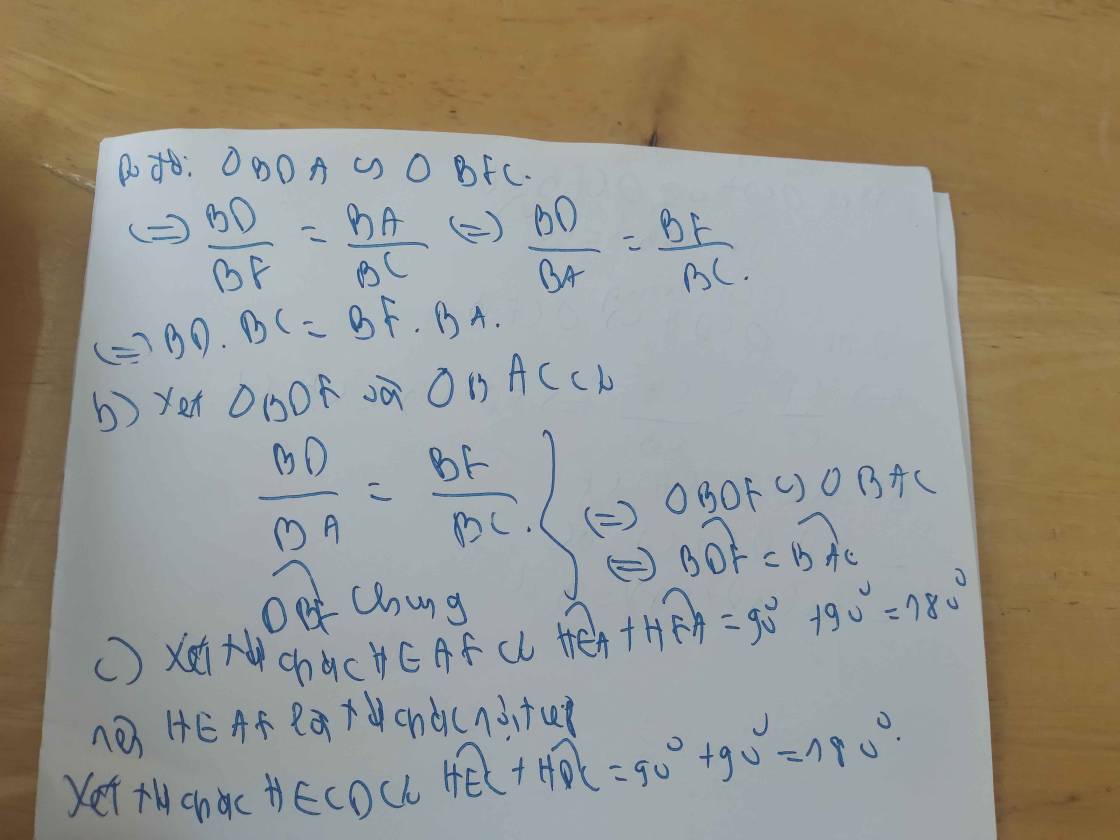 Do đó: ΔBDA ∽ ΔBFC.
(=) BD/BF = BA/BC (=) BD/BA = BF/BC.
(=) BD.BC = BF.BA.
b) Xét ΔBDF và ΔBAC có
BD/BA = BF/BC.
DBF chung
(=) ΔBDF ∽ ΔBAC
(=) BDF = BAC
c) Xét tứ giác HEAF có HEA + HFA = 90° + 90° = 180
nên HEAF là tứ giác nội tiếp
Xét tứ giác HECD có HEC + HDC = 90° + 90° = 180°.